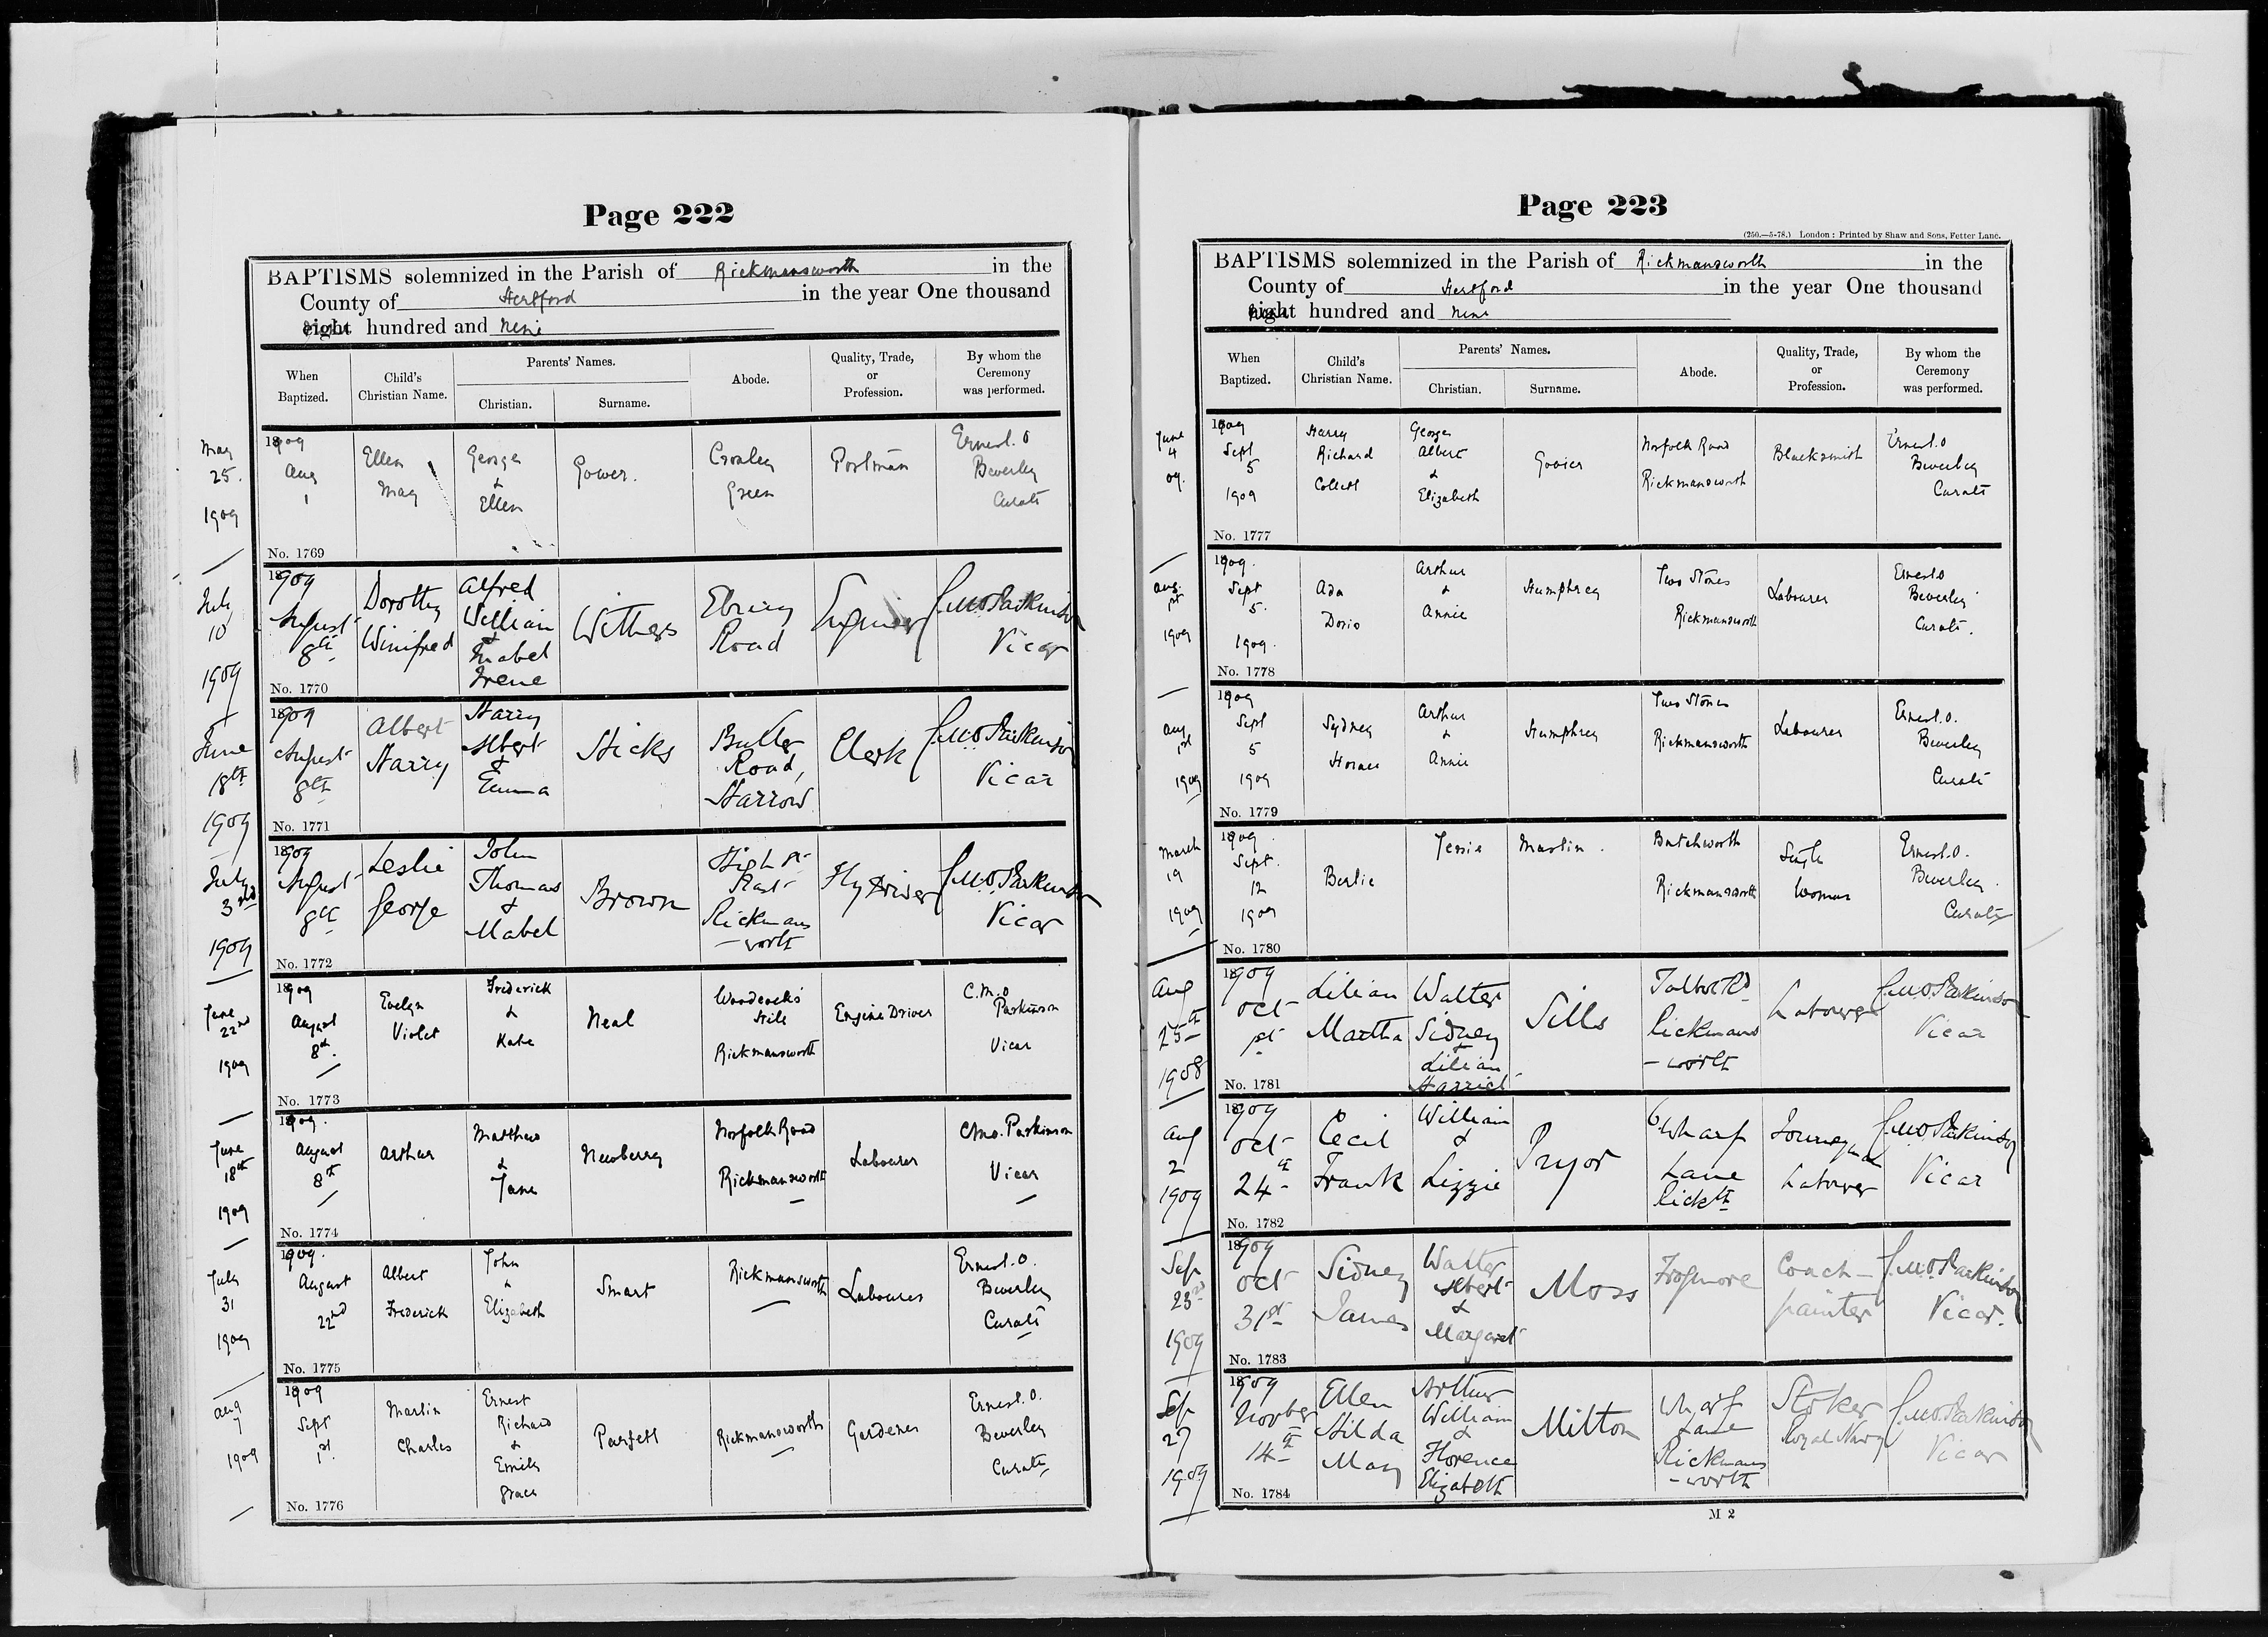 Page 222
BAPTISMS solemnized in the Parish of Rickmansworth in the
County of Hertford in the year One thousand
eight hundred and nine
When Baptized.
Child's Christian Name.
Parents' Names.
Christian.
Surname.
Abode.
Quality, Trade, or Profession.
By whom the Ceremony was performed.
May
25.
1909
1909
Aug
1
No. 1769
Ellen
May
George
&
Ellen
Gower.
Croxley
Green
Postman
Ernest. O
Beverley
Curate
July
10
1909
1909
August
8th
No. 1770
Dorothy
Winifred
Alfred
William
&
Mabel
Irene
Withers
Ebury
Road
Engineer
C.M.O. Parkinson
Vicar
June
18th
1909
1909
August
8th
No. 1771
Albert
Harry
Harry
Albert
&
Emma
Hicks
Butler
Road,
Harrow
Clerk
C.M.O. Parkinson
Vicar
July
3rd
1909
1909
August
8th
No. 1772
Leslie
George
John
Thomas
&
Mabel
Brown
High St
East
Rickmans
-worth
Fly Driver
C.M.O. Parkinson
Vicar
June
22nd
1909
1909
August
8th.
No. 1773
Evelyn
Violet
Frederick
&
Kate
Neal
Woodcock's
Hill
Rickmansworth
Engine Driver
C.M.O
Parkinson
Vicar
June
18th
1909
1909.
August
8th
No. 1774
Arthur
Matthew
&
Jane
Newberry
Norfolk Road
Rickmansworth
Labourer
CMO. Parkinson
Vicar
July
31
1909
1909.
August
22nd
No. 1775
Albert
Frederick
John
&
Elizabeth
Smart
Rickmansworth
Labourer
Ernest. O.
Beverley
Curate
Aug
7
1909
1909
Sept
1st.
No. 1776
Martin
Charles
Ernest
Richard
&
Emily
Grace
Parfett
Rickmansworth
Gardener
Ernest. O.
Beverley
Curate
Page 223
(250.—5-78.) London: Printed by Shaw and Sons, Fetter Lane.
BAPTISMS solemnized in the Parish of Rickmansworth in the
County of Hertford in the year One thousand
eight hundred and nine
When Baptized.
Child's Christian Name.
Parents' Names.
Christian.
Surname.
Abode.
Quality, Trade, or Profession.
By whom the Ceremony was performed.
June
4
09.
1909
Sept
5
1909
No. 1777
Harry
Richard
Collett
George
Albert
&
Elizabeth
Norfolk Road
Rickmansworth
Blacksmith
Ernest. O
Beverley
Curate
Aug.
1st
1909
1909.
Sept
5.
1909.
No. 1778
Ada
Doris
Arthur
&
Annie
Humphrey
Two Stones
Rickmansworth
Labourer
Ernest O
Beverley
Curate.
Aug
1st
1909
1909
Sept
5
1909
No. 1779
Sydney
Horace
Arthur
&
Annie
Humphrey
Two Stones
Rickmansworth
Labourer
Ernest. O.
Beverley
Curate
March
19
1909
1909.
Sept.
12
1909
No. 1780
Bertie
Jessie
Martin.
Batchworth
Rickmansworth
Single
Woman
Ernest. O.
Beverley.
Curate
Aug
25th
1908
1909
Oct
1st
No. 1781
Lilian
Martha
Walter
Sidney
&
Lilian
Harriet
Sills
Talbot Rd
Rickmans
-worth
Labourer
C.M.O. Parkinson
Vicar
Aug
2
1909
1909
Oct
24th
No. 1782
Cecil
Frank
William
&
Lizzie
Pryor
6 Wharf
Lane
Rickth
Labourer
C.M.O. Parkinson
Vicar
Sep
23rd
1909
1909
Oct
31st
No. 1783
Sidney
James
Walter
Albert
&
Margaret
Moss
Frogmore
Coach-
painter
C.M.O. Parkinson
Vicar.
Sep
27
1909
1909
Novber
14th
No. 1784
Ellen
Hilda
May
Arthur
William
&
Florence
Elizabeth
Milton
Wharf
Lane
Rickmans
-worth
Stoker
Royal Navy
C.M.O. Parkinson
Vicar
M 2